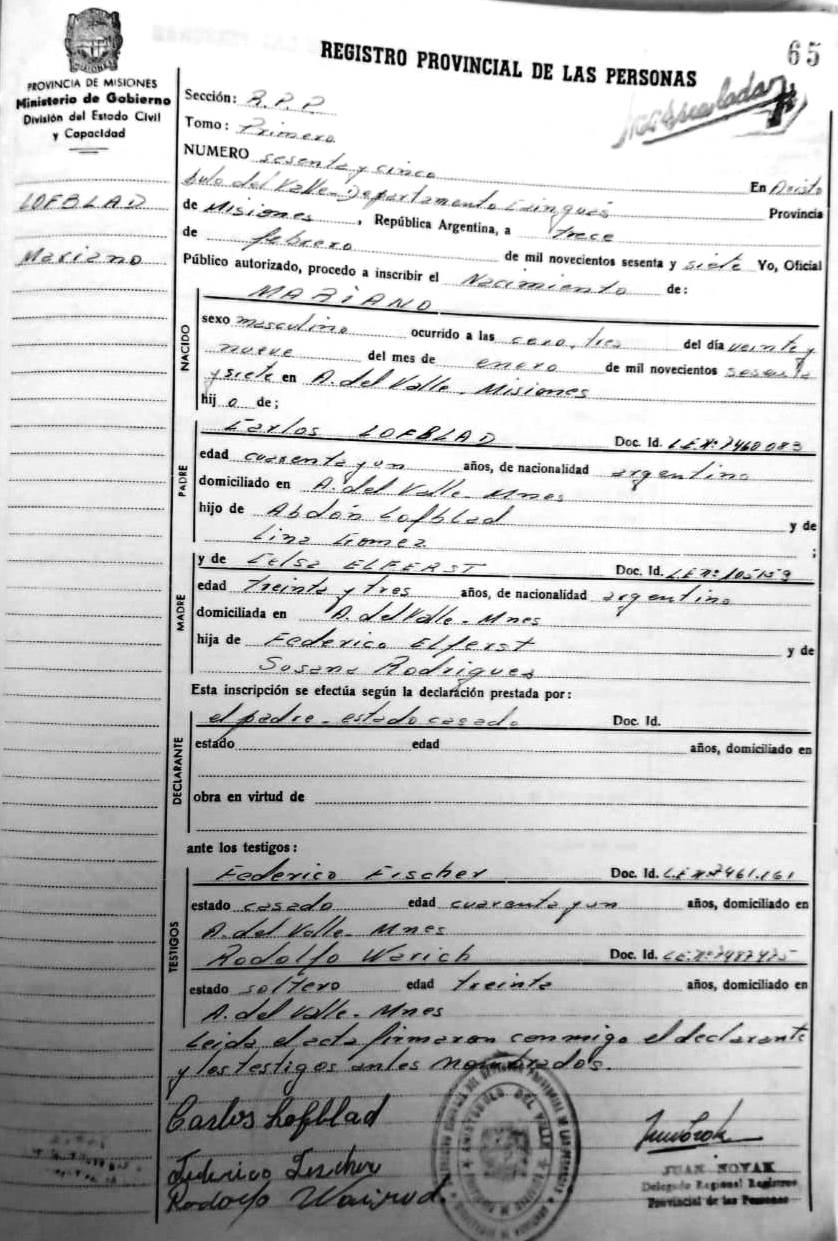 65
REGISTRO PROVINCIAL DE LAS PERSONAS
PROVINCIA DE MISIONES
Ministerio de Gobierno
División del Estado Civil
y Capacidad
LOFBLAD
Mariano
Sección: R.P.P.
Tomo: Primero
NUMERO sesenta y cinco
En Aristó
bulo del Valle-Departamento Cainguás Provincia
de Misiones, República Argentina, a trece
de febrero de mil novecientos sesenta y siete Yo, Oficial
Público autorizado, procedo a inscribir el Nacimiento de:
NACIDO
MARIANO
sexo masculino ocurrido a las cero, tres del día veinte y
nueve del mes de enero de mil novecientos sesenta
y siete en A. del Valle - Misiones
hijo de;
PADRE
Carlos LOFBLAD Doc. Id. L.E.Nº 7460083
edad cuarenta y un años, de nacionalidad argentino
domiciliado en A. del Valle - Mnes
hijo de Abdón Lofblad y de
Lina Gomez ;
MADRE
y de Celsa ELFERST Doc. Id.
edad treinta y tres años, de nacionalidad argentina
domiciliada en A. del Valle - Mnes
hija de Federico Elferst y de
Susana Rodrigues
Esta inscripción se efectúa según la declaración prestada por:
DECLARANTE
el padre - estado casado Doc. Id.
estado edad años, domiciliado en
obra en virtud de
ante los testigos:
TESTIGOS
Federico Fischer Doc. Id. L.E.Nº 7461.161
estado casado edad cuarenta y un años, domiciliado en
A. del Valle - Mnes
Rodolfo Warich Doc. Id.
estado soltero edad treinta años, domiciliado en
A. del Valle - Mnes
Leida el acta firmaron conmigo el declarante
y los testigos antes nombrados.
Carlos Lofblad
Federico Fischer
Rodolfo
JUAN NOVAK
Delegado Regional Registros
Provincial de las Personas
ARISTOBULO DEL VALLE